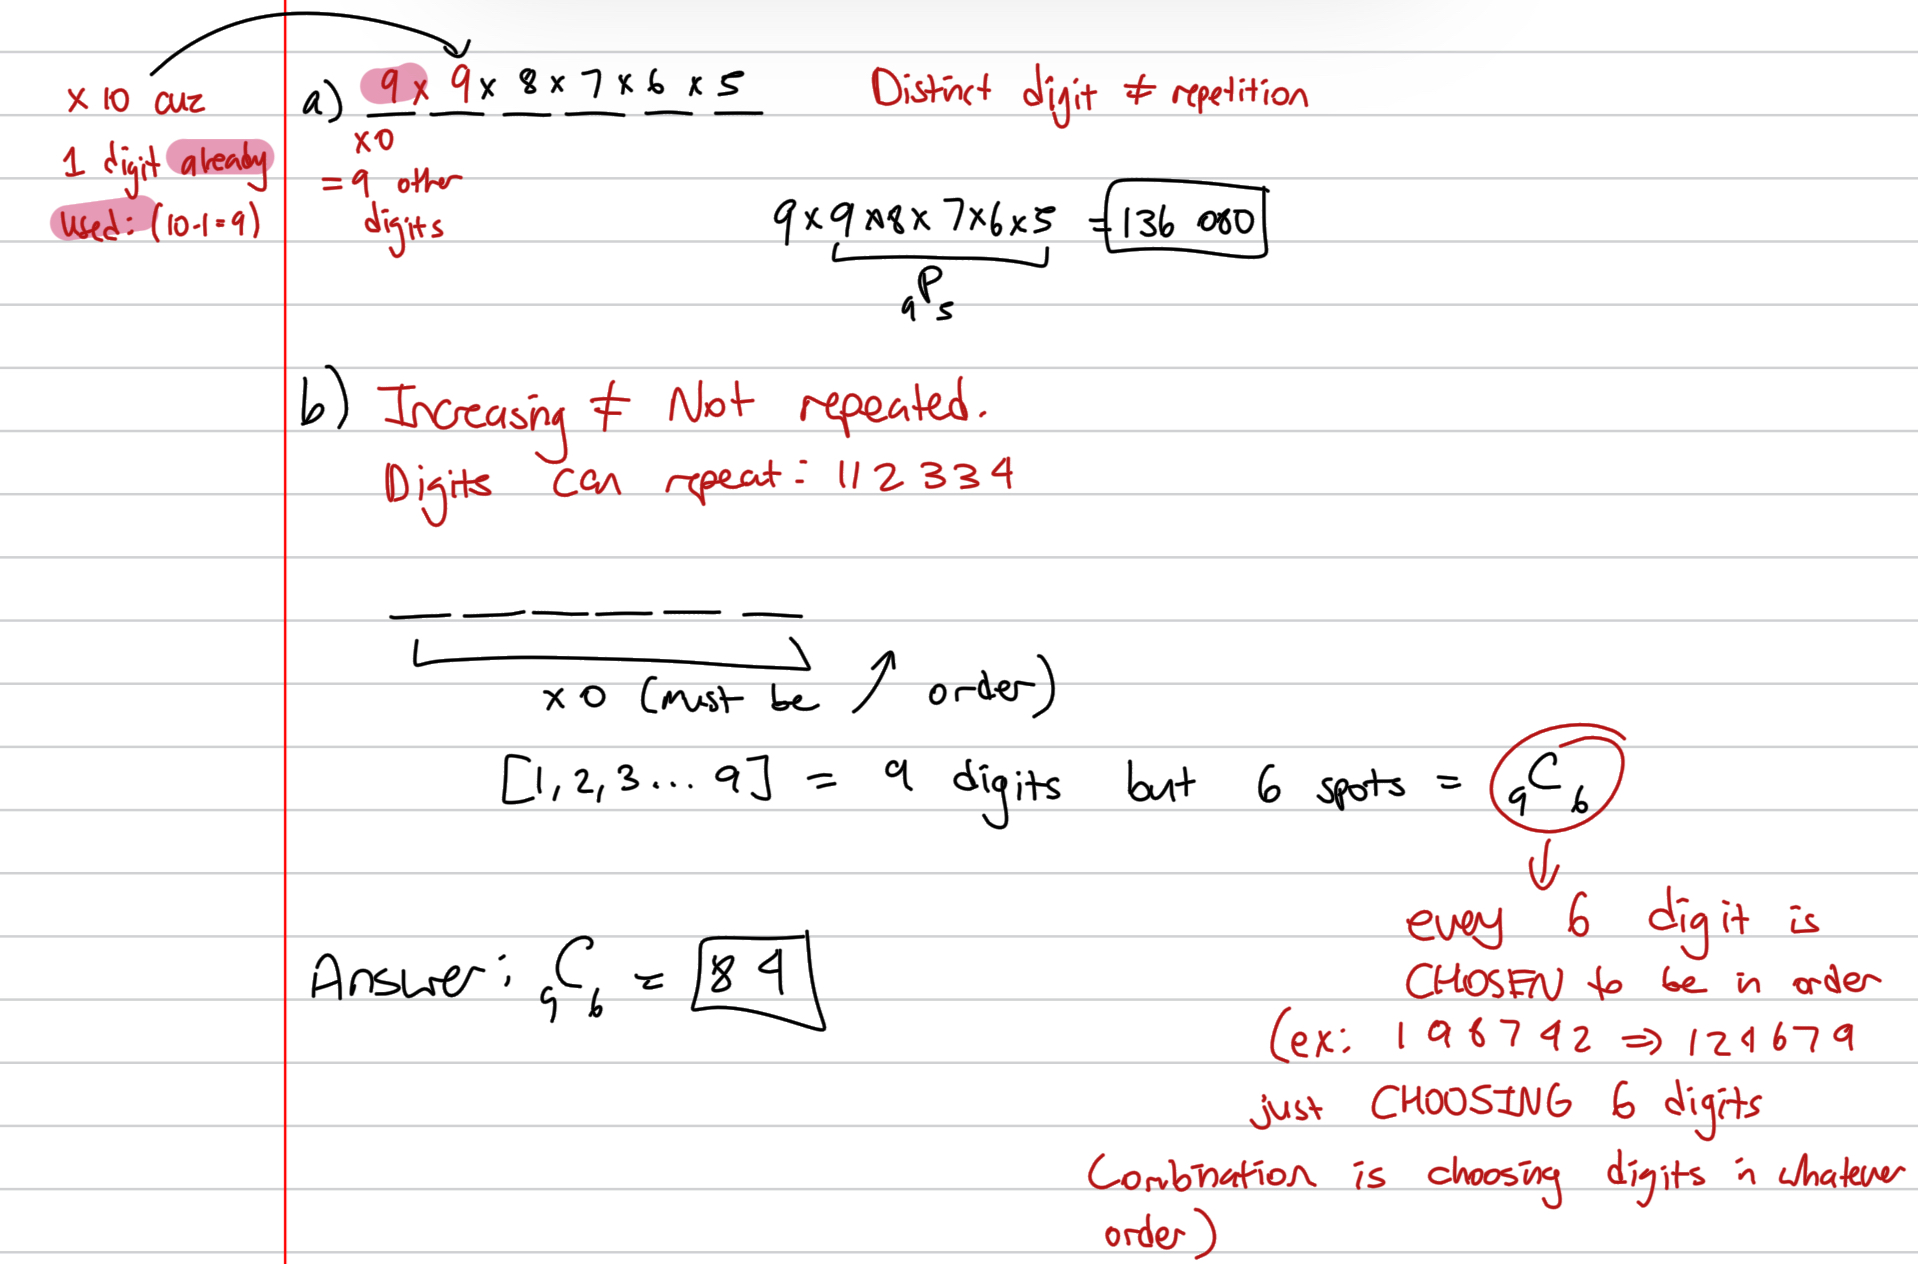 x 10 cuz
1 digit already
used: (10-1=9)
a) 9 x 9 x 8 x 7 x 6 x 5
x 0
= 9 other
digits
Distinct digit ≠ repetition
9 x 9 x 8 x 7 x 6 x 5 = 136 080
9P5
b) Increasing ≠ Not repeated.
Digits can repeat: 112334
x 0 (must be ↗ order)
[1, 2, 3 ... 9] = 9 digits but 6 spots = 9C6
↓
every 6 digit is
CHOSEN to be in order
(ex: 198742 ⇒ 124679
just CHOOSING 6 digits
Combination is choosing digits in whatever
order)
Answer: 9C6 = 84